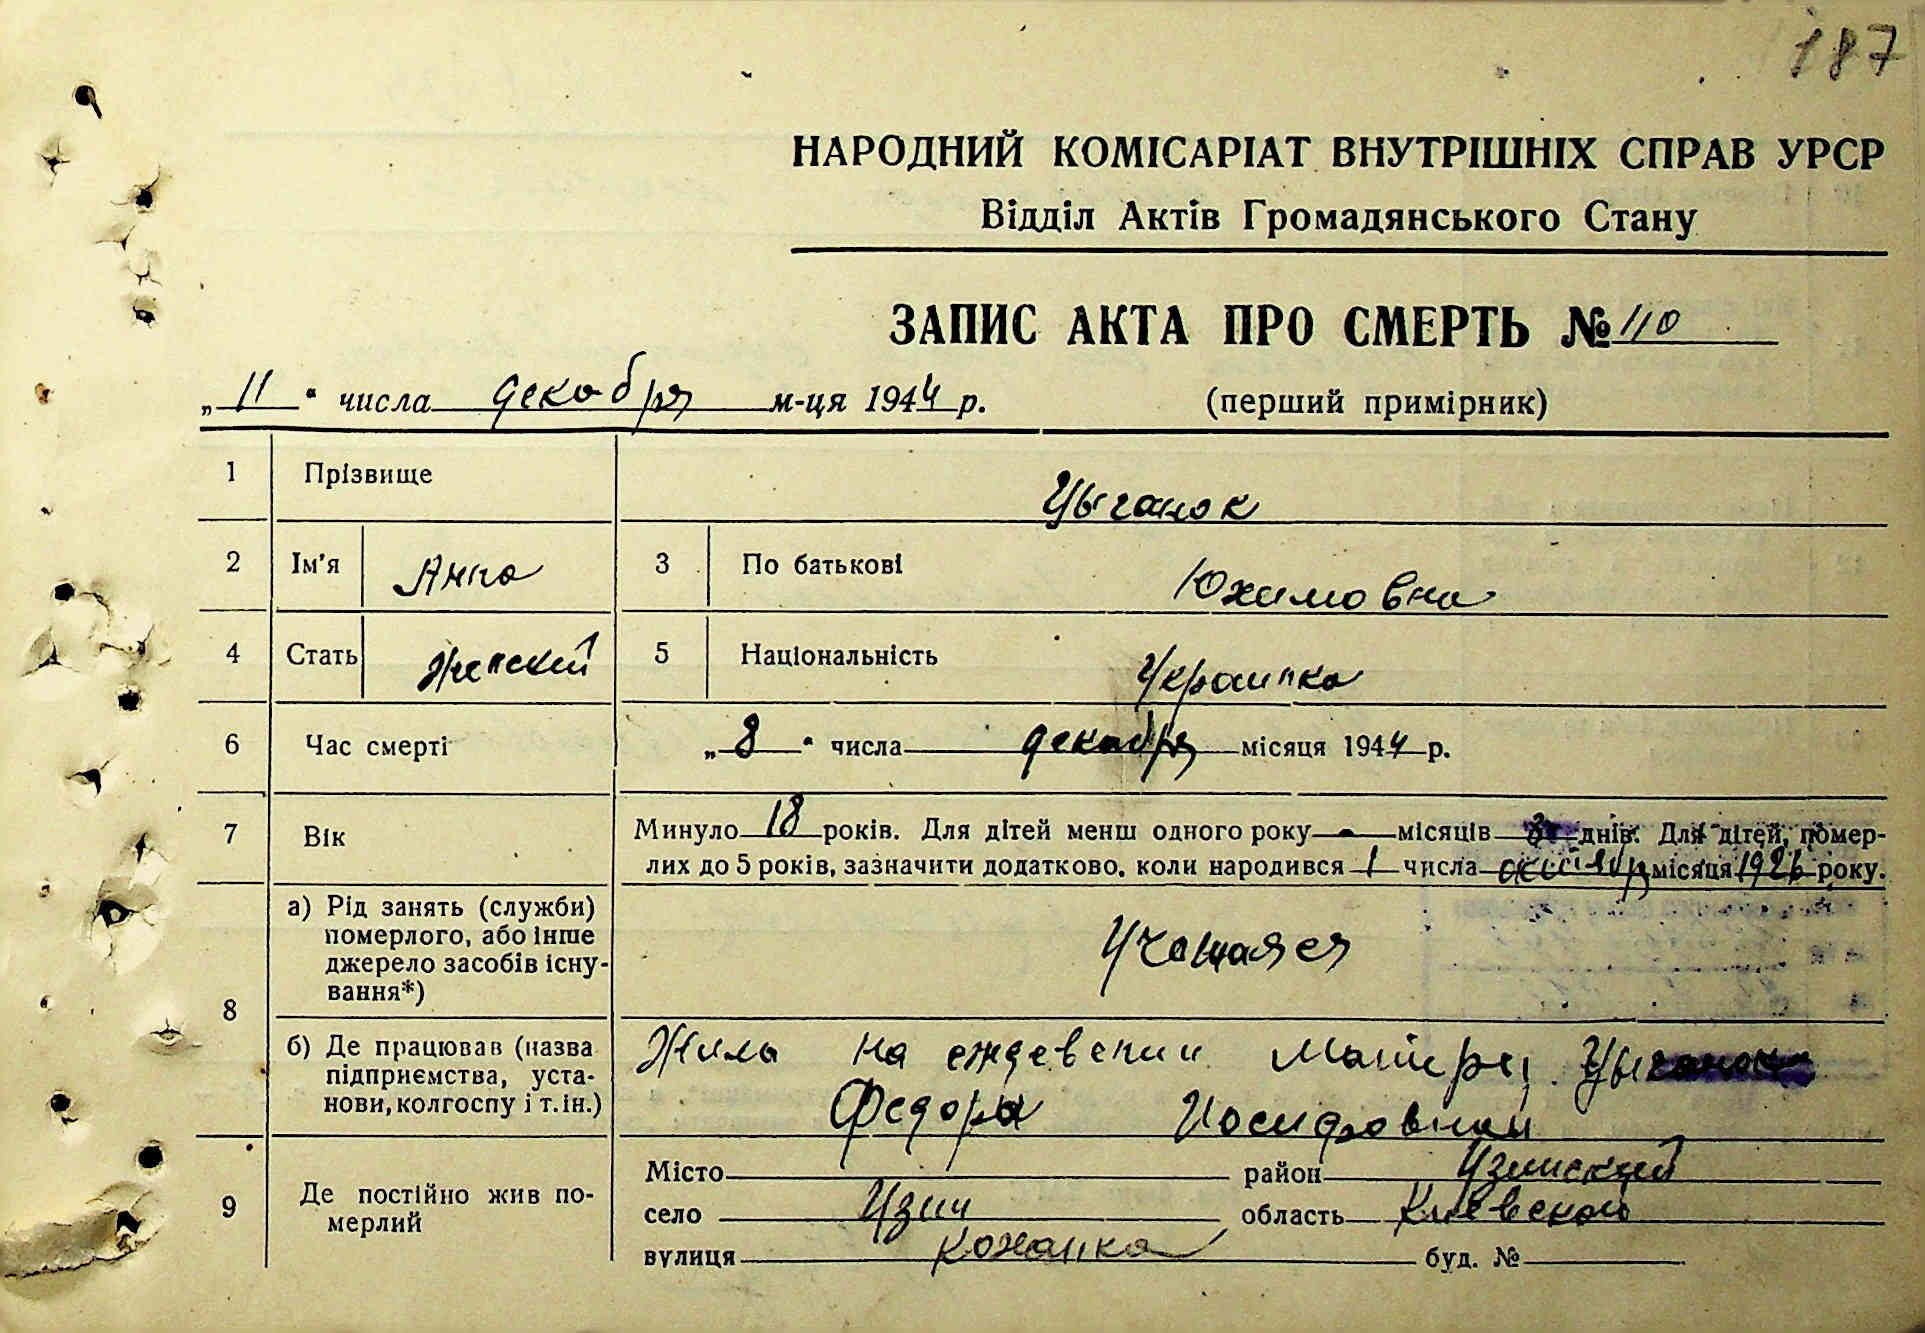 187
НАРОДНИЙ КОМІСАРІАТ ВНУТРІШНІХ СПРАВ УРСР
Відділ Актів Громадянського Стану
ЗАПИС АКТА ПРО СМЕРТЬ № 110
„11“ числа декабря м-ця 1944 р. (перший примірник)
1 Прізвище Цыганок
2 Ім'я Анна 3 По батькові Юхимовна
4 Стать Женский 5 Національність Украинка
6 Час смерті „8“ числа декабря місяця 1944 р.
7 Вік Минуло 18 років. Для дітей менш одного року - місяців днів. Для дітей, помер-
лих до 5 років, зазначити додатково, коли народився 1 числа октября місяця 1926 року.
8 а) Рід занять (служби) померлого, або інше джерело засобів існу-вання*) Учащаяся
б) Де працював (назва підприємства, уста-нови, колгоспу і т.ін.) Жила на еждевении матери Цыганок
Федора Иосифовны
9 Де постійно жив по-мерлий Місто район Узинский
село Узин область Киевской
вулиця Кожанка буд. №